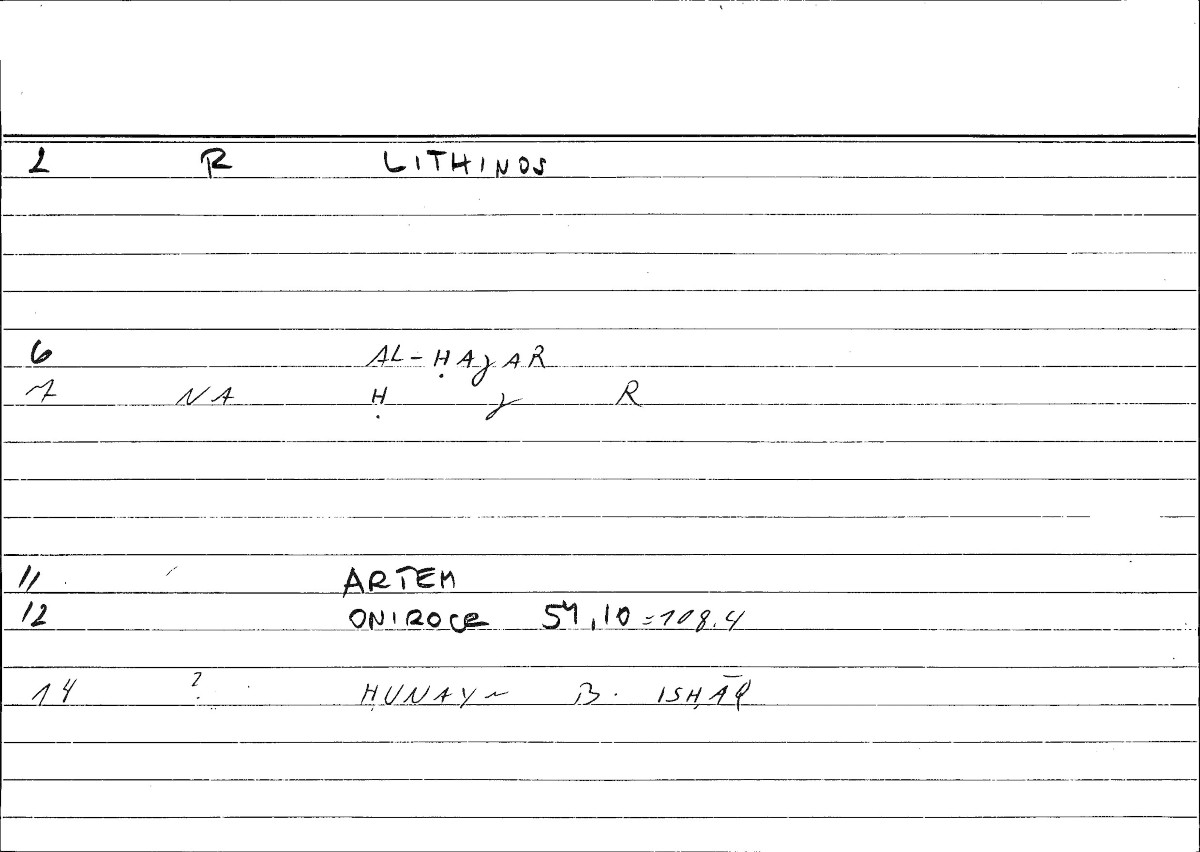 2 R LITHINOS
6 AL-ḤAJAR
7 NA Ḥ J R
11 ARTEM
12 ONIROCR 54,10=108.4
14 ? ḤUNAYN B. ISḤĀQ